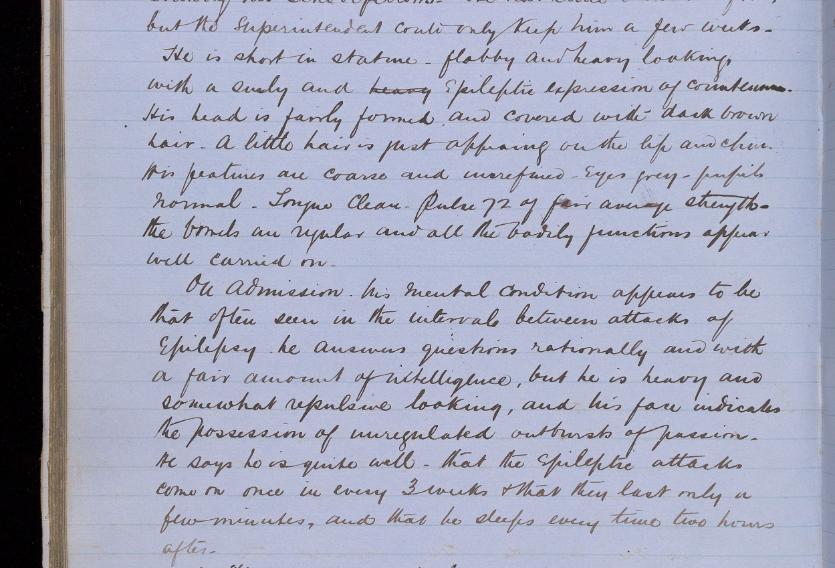 but the Superintendent could only keep him a few weeks-
He is short in stature - flabby and heavy looking,
with a surly and heavy Epileptic expression of countenance.
His head is fairly formed and covered with dark brown
hair - A little hair is just appearing on the lip and chin.
His features are coarse and unrefined - Eyes grey - pupils
normal - Tongue Clean - Pulse 72 of fair average strength-
the bowels are regular and all the bodily functions appear
well carried on -
On Admission - his mental condition appears to be
that often seen in the intervals between attacks of
Epilepsy - he answers questions rationally and with
a fair amount of intelligence, but he is heavy and
somewhat repulsive looking, and his face indicates
the possession of unregulated outbursts of passion -
He says he is quite well - that the Epileptic attacks
come on once in every 3 weeks & that they last only a
few minutes, and that he sleeps every time two hours
after -